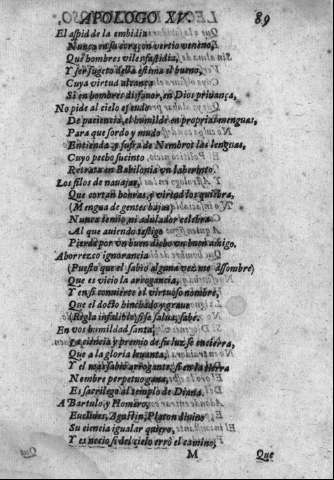 APOLOGO XV. 89
El aspid de la embidia
Nunca en su coraçon vertio veneno,
Que hombres viles fastidia,
Y ser sugeto della estima el bueno,
Cuya virtud alcança
Si en hombres disfavor, en Dios privança,
No pide al cielo escudo
De paciencia, el humilde en proprias menguas,
Para que sordo y mudo
Entienda y sufra de Nembrot las lenguas,
Cuyo pecho sucinto
Retrata en Babilonia un laberinto.
Los filos de navajas,
Que cortan honras, y virtud los quiebra,
(Mengua de gentes bajas)
Nunca temio, ni adulador celebra
Al que auiendo testigo
Pierde por vn buen dicho vn buen amigo.
Aborrezco ignorancia
(Puesto que el sabio alguna vez me assombre)
Que es vicio la arrogancia,
Y en si convierte el virtuoso nombre,
Que el docto hinchado y grave
(Regla infalible) si se salua, sabe.
En vos humildad santa,
La ciencia y premio de su luz se encierra,
Que a la gloria leuanta,
Y el mas sabio arrogante, si en la tierra
Nombre perpetuo gana,
Es sacrilego al templo de Diana.
A Bartulo, y Homero,
Euclides, Agustin, Platon divino
Su ciencia igualar quiero,
Y es necio si del cielo errò el camino,
M Que